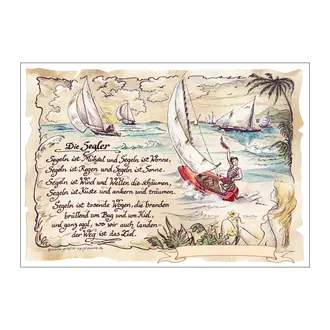 Die Segler
Segeln ist Mühsal und Segeln ist Wonne,
Segeln ist Regen und Segeln ist Sonne.
Segeln ist Wind und Wellen die schäumen,
Segeln ist Küste und ankern und träumen.
Segeln ist tosende Wogen, die branden
brüllend um Bug und um Kiel,
und ganz egal, wo wir auch landen-
der Weg ist das Ziel.